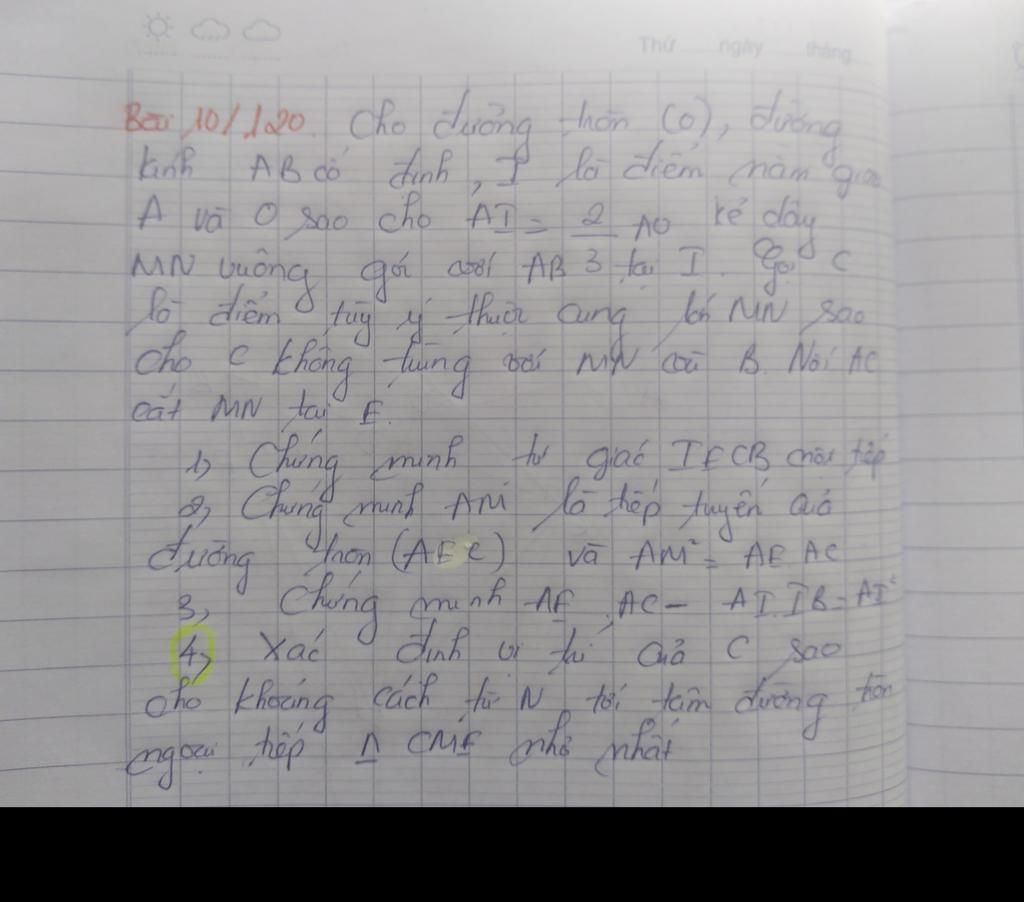 Thứ ngày tháng
Bài 10/120. Cho đường tròn (O), đường
kính AB cố định, I là điểm nằm giữa
A và O sao cho AI = 2/3 AO kẻ dây
MN vuông góc với AB tại I. Gọi C
là điểm tùy ý thuộc cung lớn MN sao
cho C không trùng với M N và B. Nối AC
cắt MN tại E.
1, Chứng minh tứ giác IECB nội tiếp
2, Chứng minh AM là tiếp tuyến của
đường tròn (AEC) và AM² = AE.AC
3, Chứng minh AE.AC - AI.IB = AI²
4, Xác định vị trí của C sao
cho khoảng cách từ N tới tâm đường tròn
ngoại tiếp Δ CME nhỏ nhất